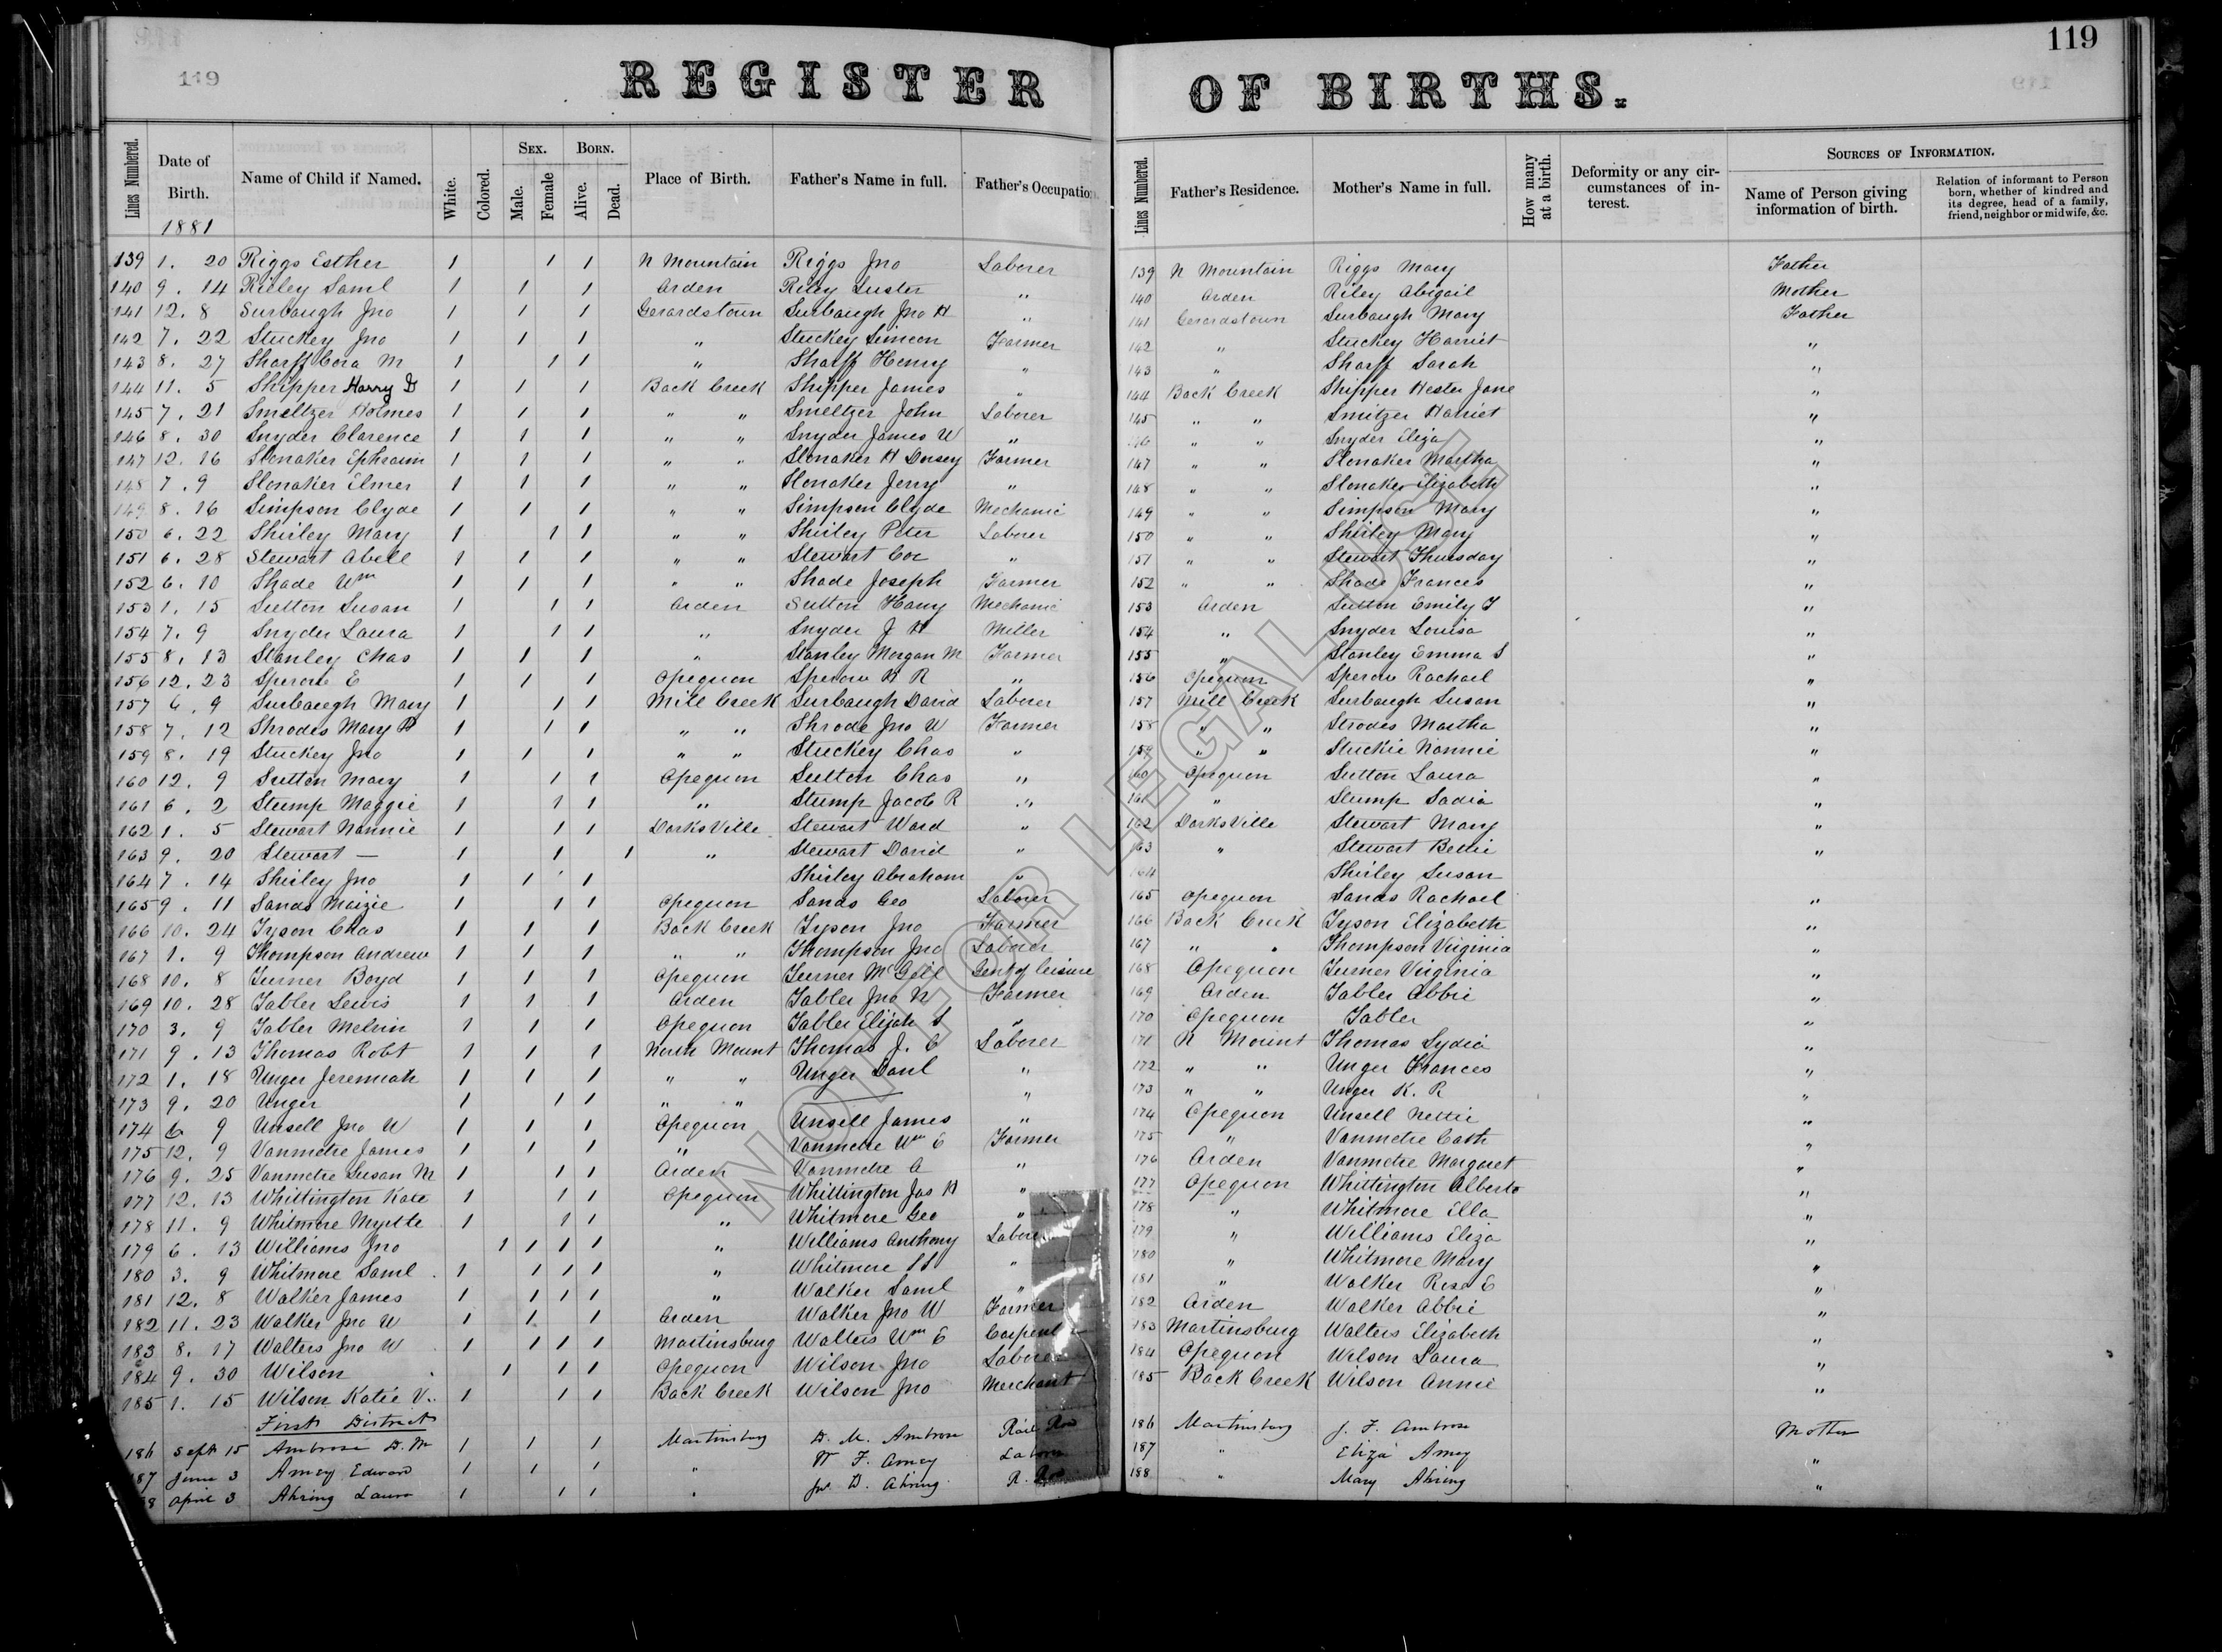 119
119
REGISTER OF BIRTHS.
Lines Numbered. Date of Birth. Name of Child if Named. White. Colored. Sex. Male. Female Born. Alive. Dead. Place of Birth. Father's Name in full. Father's Occupation. Lines Numbered. Father's Residence. Mother's Name in full. How many at a birth. Deformity or any circumstances of interest. Sources of Information. Name of Person giving information of birth. Relation of informant to Person born, whether of kindred and its degree, head of a family, friend, neighbor or midwife, &c.
1881
139 1. 20 Riggs Esther 1 1 1 N Mountain Riggs Jno Laborer 139 N Mountain Riggs Mary Father
140 9. 14 Rieley Saml 1 1 1 Arden Riley Luster " 140 Arden Riley Abigail Mother
141 12. 8 Surbaugh Jno 1 1 1 Gerardstown Surbaugh Jno H " 141 Gerardstown Surbaugh Mary Father
142 7. 22 Stuckey Jno 1 1 1 " Stuckey Simeon Farmer 142 " Stuckey Harriet "
143 8. 27 Sharff Cora M 1 1 1 " Sharff Henry " 143 " Sharff Sarah "
144 11. 5 Shipper Harry D 1 1 1 Back Creek Shipper James " 144 Back Creek Shipper Hester Jane "
145 7. 21 Smeltzer Holmes 1 1 1 " " Smeltzer John Laborer 145 " " Smitzer Harriet "
146 8. 30 Snyder Clarence 1 1 1 " " Snyder James W " 146 " " Snyder Eliza "
147 12. 16 Slonaker Ephraim 1 1 1 " " Slonaker H Dorsey Farmer 147 " " Slonaker Martha "
148 7. 9 Slonaker Elmer 1 1 1 " " Slonaker Jerry " 148 " " Slonaker Elizabeth "
149 8. 16 Simpson Clyde 1 1 1 " " Simpson Clyde Mechanic 149 " " Simpson Mary "
150 6. 22 Shirley Mary 1 1 1 " " Shirley Peter Laborer 150 " " Shirley Mary "
151 6. 28 Stewart Abell 1 1 1 " " Stewart Coe " 151 " " Stewart Thursday "
152 6. 10 Shade Wm 1 1 1 " " Shade Joseph Farmer 152 " " Shade Frances "
153 1. 15 Sutton Susan 1 1 1 Arden Sutton Harry Mechanic 153 Arden Sutton Emily J "
154 7. 9 Snyder Laura 1 1 1 " Snyder J H Miller 154 " Snyder Louisa "
155 8. 13 Stanley Chas 1 1 1 " Stanley Morgan M Farmer 155 " Stanley Emma S "
156 12. 23 Sperow E 1 1 1 Opequon Sperow H R " 156 Opequon Sperow Rachael "
157 6. 9 Surbaugh Mary 1 1 1 Mill Creek Surbaugh David Laborer 157 Mill Creek Surbaugh Susan "
158 7. 12 Shrodes Mary B 1 1 1 " " Shrode Jno W Farmer 158 " " Strodes Martha "
159 8. 19 Stuckey Jno 1 1 1 " " Stuckey Chas " 159 " " Stuckie Nannie "
160 12. 9 Sutton Mary 1 1 1 Opequon Sutton Chas " 160 Opequon Sutton Laura "
161 6. 2 Stump Maggie 1 1 1 " Stump Jacob R " 161 " Stump Sadia "
162 1. 5 Stewart Nannie 1 1 1 DarksVille Stewart Ward " 162 DarksVille Stewart Mary "
163 9. 20 Stewart — 1 1 1 " Stewart David " 163 " Stewart Bettie "
164 7. 14 Shirley Jno 1 1 1 Shirley Abraham " 164 Shirley Susan
165 9. 11 Sands Maizie 1 1 1 Opequon Sands Geo Laborer 165 Opequon Sands Rachael "
166 10. 24 Tyson Chas 1 1 1 Back Creek Tyson Jno Farmer 166 Back Creek Tyson Elizabeth "
167 1. 9 Thompson Andrew 1 1 1 " " Thompson Jno Laborer 167 " " Thompson Virginia "
168 10. 8 Turner Boyd 1 1 1 Opequon Turner McGill Gent of leisure 168 Opequon Turner Virginia "
169 10. 28 Tabler Lewis 1 1 1 Arden Tabler Jno W Farmer 169 Arden Tabler Abbie "
170 3. 9 Tabler Melvin 1 1 1 Opequon Tabler Elijah S " 170 Opequon Tabler "
171 9. 13 Thomas Robt 1 1 1 North Mount Thomas J. C Laborer 171 N Mount Thomas Lydia "
172 1. 18 Unger Jeremiah 1 1 1 " " Unger Danl " 172 " " Unger Frances "
173 9. 20 Unger 1 1 1 " " — " 173 " " Unger K. R "
174 6 9 Unsell Jno W 1 1 1 Opequon Unsell James " 174 Opequon Unsell Nettie "
175 12. 9 Vanmetre James 1 1 1 " Vanmetre Wm E Farmer 175 " Vanmetre Cath "
176 9. 25 Vanmetre Susan M 1 1 1 Arden Vanmetre A " 176 Arden Vanmetre Margaret "
177 12. 13 Whittington Kate 1 1 1 Opequon Whittington Jas H " 177 Opequon Whittington Alberta "
178 11. 9 Whitmore Myrtle 1 1 1 " Whitmore Geo " 178 " Whitmore Ella "
179 6. 13 Williams Jno 1 1 1 1 " Williams Anthony Laborer 179 " Williams Eliza "
180 3. 9 Whitmore Saml 1 1 1 1 " Whitmore S S " 180 " Whitmore Mary "
181 12. 8 Walker James 1 1 1 1 " Walker Saml " 181 " Walker Rosa E "
182 11. 23 Walker Jno W 1 1 1 Arden Walker Jno W Farmer 182 Arden Walker Abbie "
183 8. 17 Walters Jno W 1 1 1 1 Martinsburg Walters Wm E Carpenter 183 Martinsburg Walters Elizabeth "
184 9. 30 Wilson 1 1 1 Opequon Wilson Jno Laborer 184 Opequon Wilson Laura "
185 1. 15 Wilson Katie V. 1 1 1 Back Creek Wilson Jno Merchant 185 Back Creek Wilson Annie "
First District
186 Sept 15 Ambrose D. M 1 1 1 Martinsburg D. M. Ambrose Rail Roa 186 Martinsburg J. F. Ambrose Mother
187 June 3 Amey Edward 1 1 1 " W F. Amey Labor 187 " Eliza Amey "
8 April 3 Ahring Laura 1 1 1 " Jno D. Ahring R. Roa 188 " Mary Ahring "
NOT FOR LEGAL USE